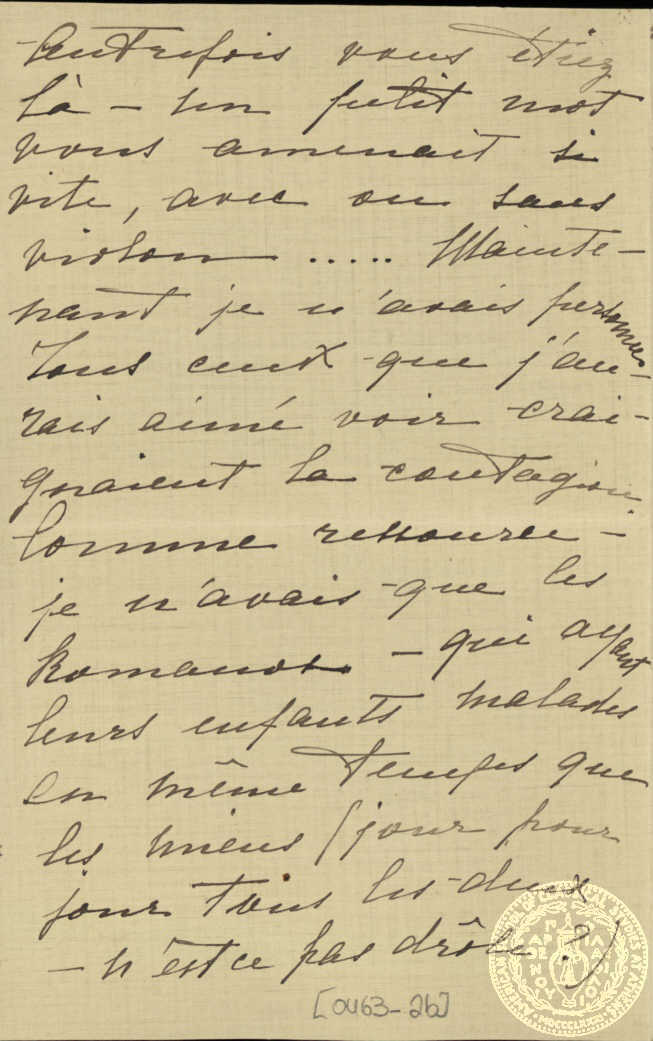 Autrefois vous étiez
là – un petit mot
vous amenait si
vite, avec ou sans
violon ..... Mainte-
nant je n'avais personne
Tous ceux que j'au-
rais aimé voir crai-
gnaient la contagion.
Comme ressource –
je n'avais que les
Romanos – qui ayant
leurs enfants malades
en même temps que
les miens (jour pour
jour tous les deux
– n'est ce pas drôle ?)
[0463-2b]
AMERICAN SCHOOL OF CLASSICAL STUDIES AT ATHENS
MDCCCLXXXI